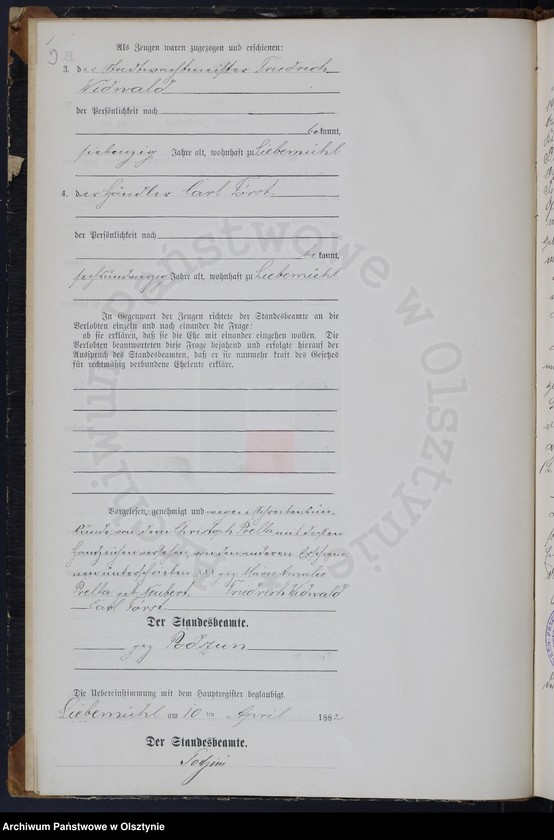 Als Zeugen waren zugezogen und erschienen:
3. der Stadtwachtmeister Friedrich
Widwald
der Persönlichkeit nach
bekannt,
siebenzig Jahre alt, wohnhaft zu Liebemühl
4. der Händler Carl Först
der Persönlichkeit nach
bekannt,
Jahre alt, wohnhaft zu Liebemühl
In Gegenwart der Zeugen richtete der Standesbeamte an die
Verlobten einzeln und nach einander die Frage:
ob sie erklären, daß sie die Ehe mit einander eingehen wollen. Die
Verlobten beantworteten diese Frage bejahend und erfolgte hierauf der
Ausspruch des Standesbeamten, daß er sie nunmehr kraft des Gesetzes
für rechtmäßig verbundene Eheleute erkläre.
Vorgelesen, genehmigt und wegen Schreibenun-
kunde von dem Christoph Prella mit dessen
Handzeichen versehen, von den anderen Erschiene-
nen unterschrieben XXX gez Marie Amalie
Prella geb. Neubert Friedrich Widwald
Carl Först
Der Standesbeamte.
gez Podzun
Die Uebereinstimmung mit dem Hauptregister beglaubigt
Liebemühl am 10 ten April 1882
Der Standesbeamte.
Archiwum Państwowe w Olsztynie
Archiwum Państwowe w Olsztynie